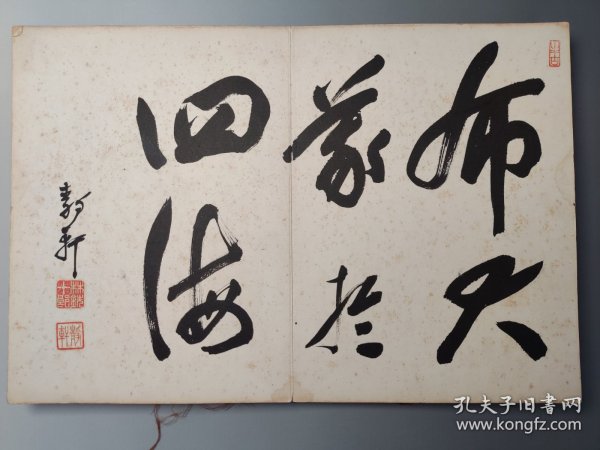 布大
義於
四海
孔夫子旧书网
www.kongfz.com